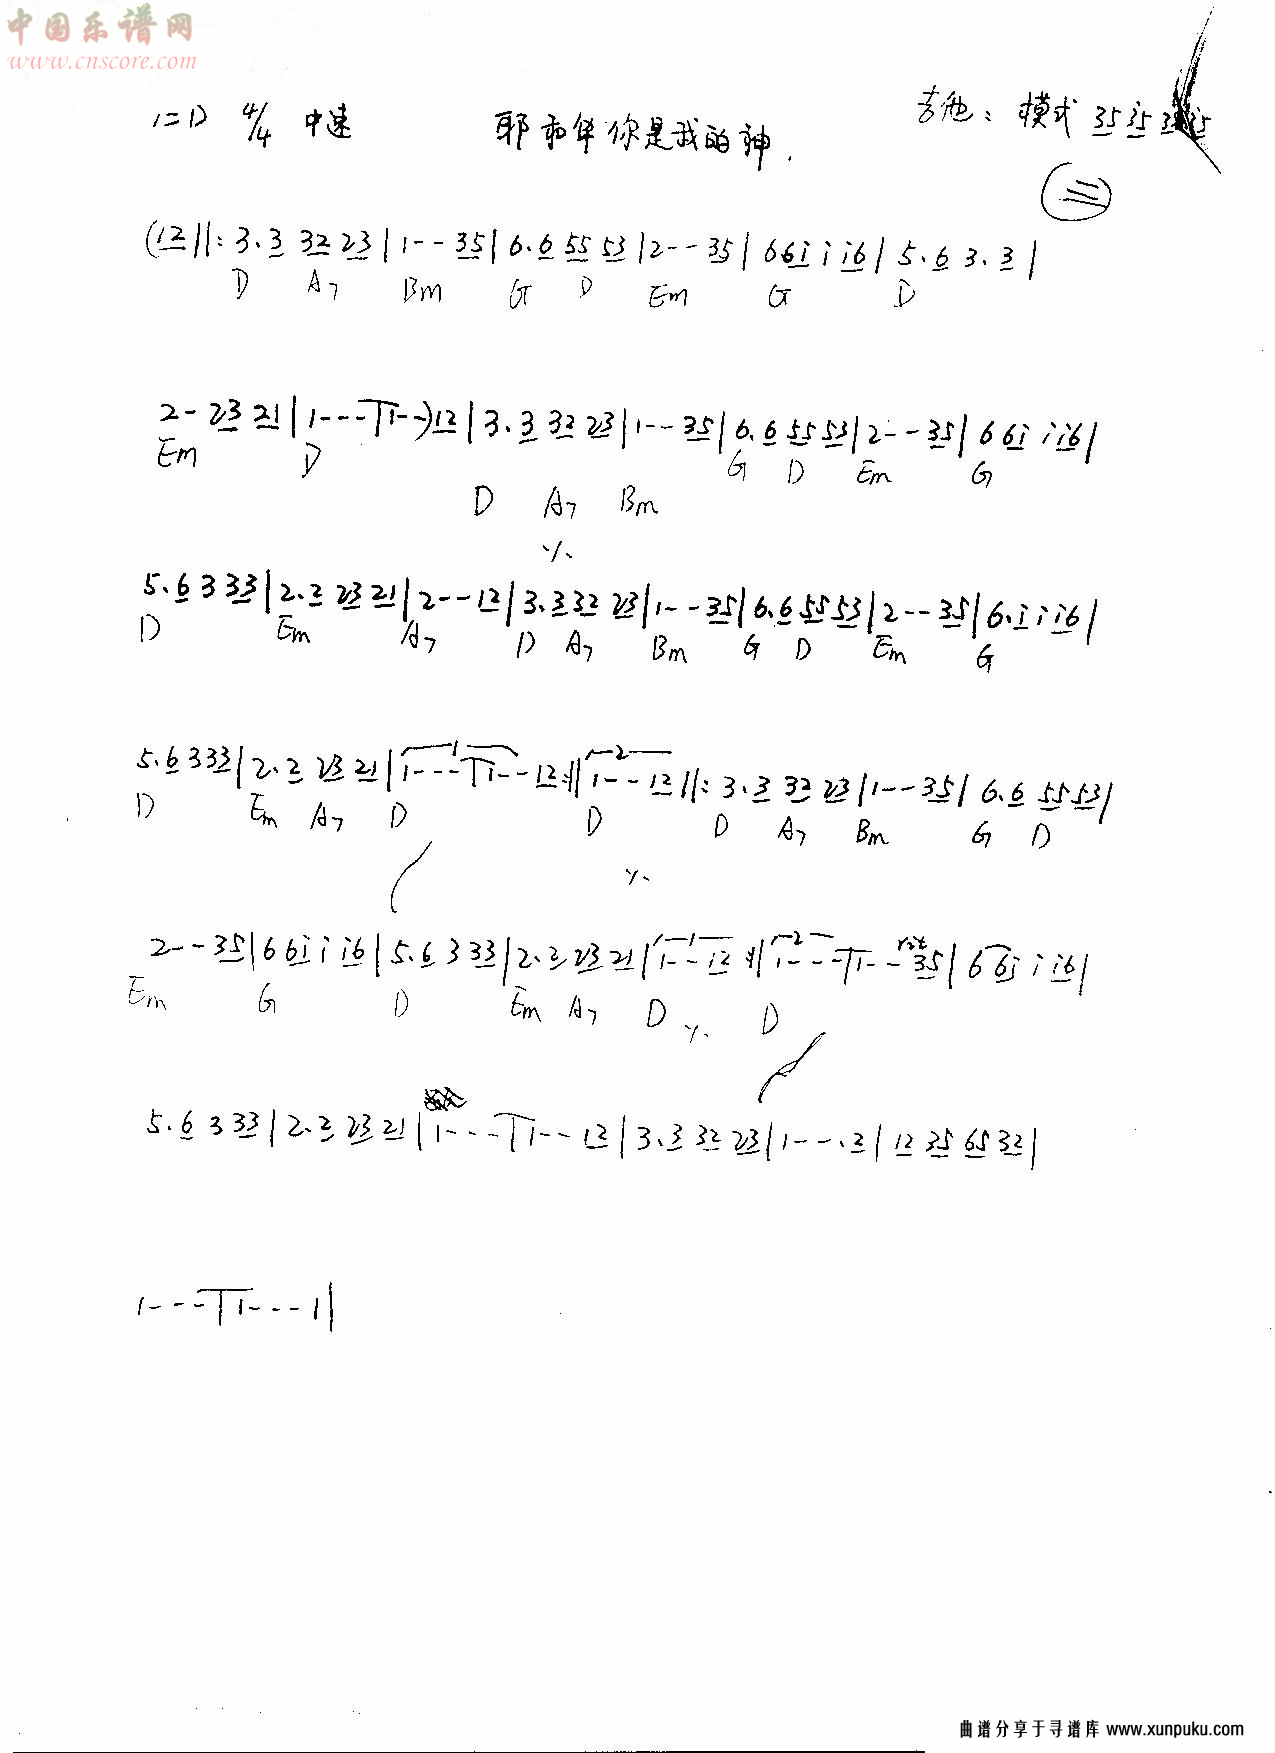 中国乐谱网
www.cnscore.com
1=D 4/4 中速 耶和华你是我的神. 吉他: 模式 35 i5 35 i5
(三)
(12||: 3.3 32 23 | 1--35 | 6.6 55 53 | 2--35 | 6 6i i i6 | 5.6 3.3 |
D A7 Bm G D Em G D
2- 23 21 | 1---|1--) 12 | 3.3 32 23 | 1--35 | 6.6 55 53 | 2--35 | 6 6i i i6 |
Em D G D Em G
D A7 Bm
5.6 3 33 | 2.2 23 21 | 2--12 | 3.3 32 23 | 1--35 | 6.6 55 53 | 2--35 | 6.i i i6 |
D Em A7 D A7 Bm G D Em G
1 2
5.6 3 33 | 2.2 23 21 | 1---|1--12 :|| 1--12 ||: 3.3 32 23 | 1--35 | 6.6 55 53 |
D Em A7 D D D A7 Bm G D
1 2 rit
2--35 | 6 6i i i6 | 5.6 3 33 | 2.2 23 21 | 1--12 :|| 1---|1--35 | 6 6i i i6 |
Em G D Em A7 D D
5.6 3 33 | 2.2 23 21 | 1---|1--12 | 3.3 32 23 | 1--.2 | 12 35 65 32 |
1---|1---||
曲谱分享于寻谱库 www.xunpuku.com